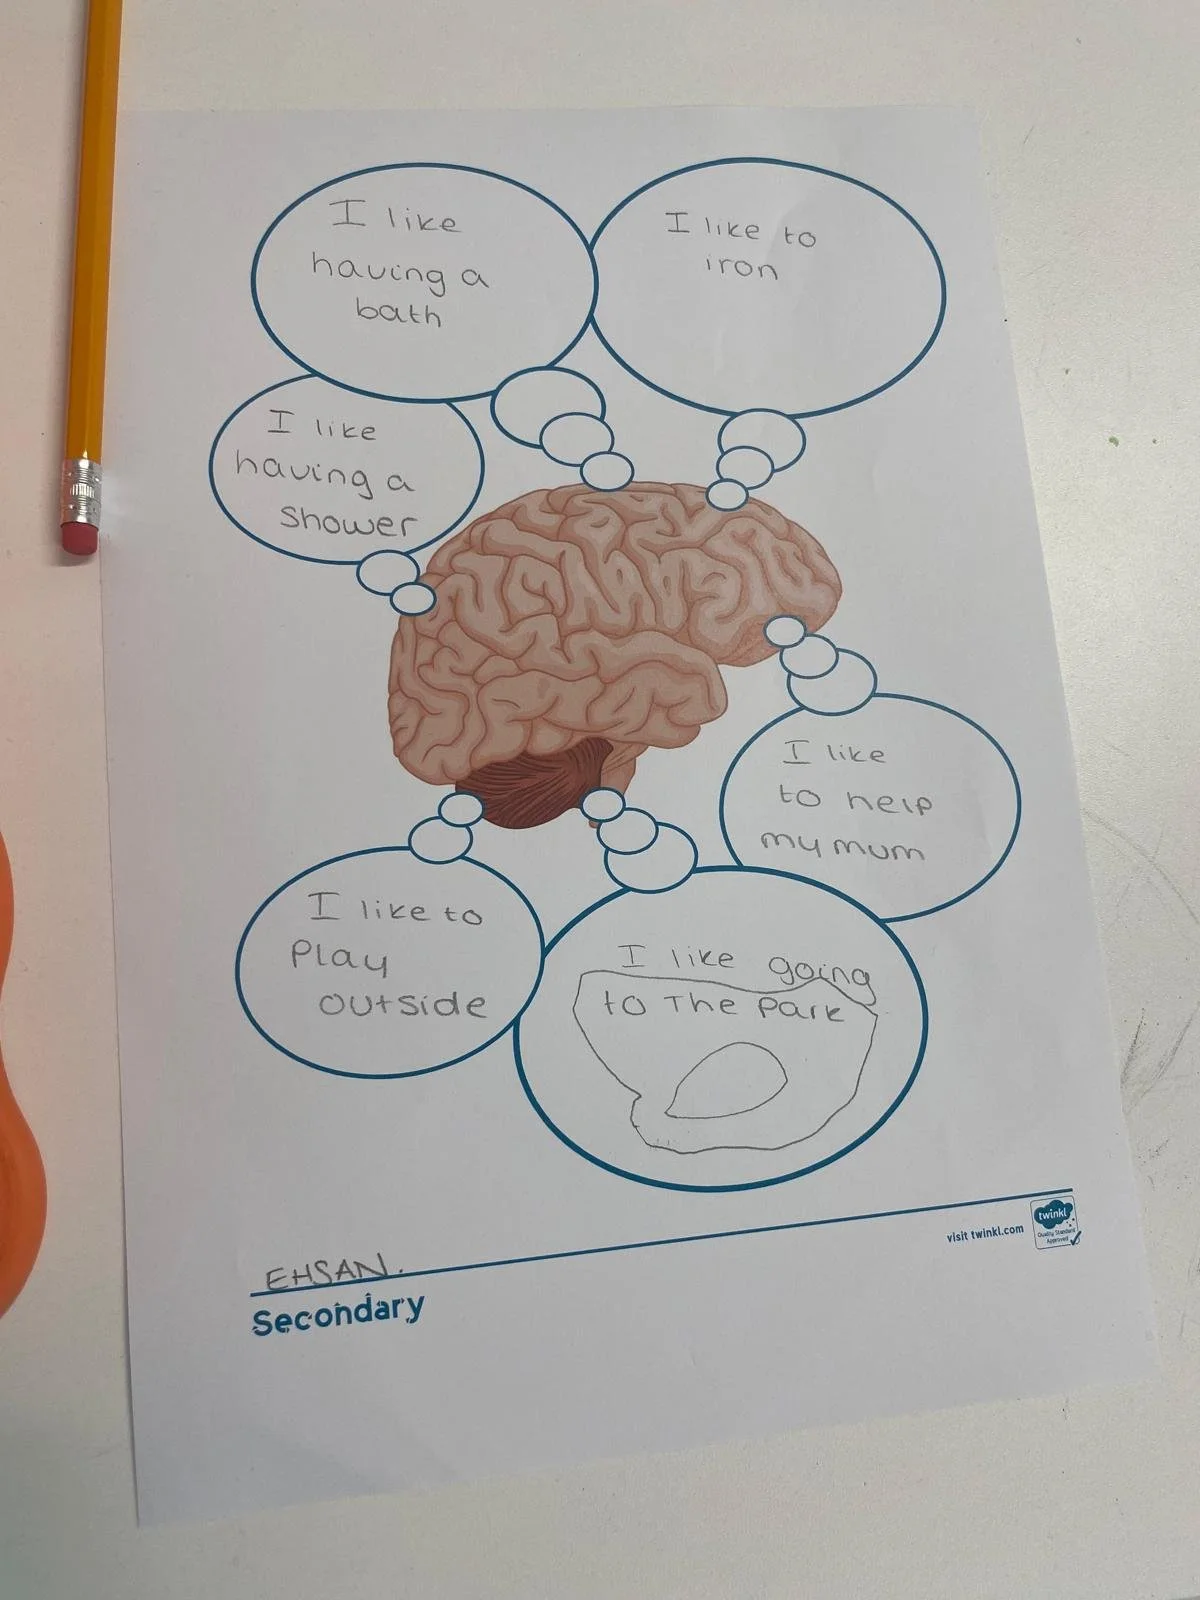 I like
having a
bath
I like to
iron
I like
having a
shower
I like
to help
my mum
I like to
Play
outside
I like going
to The Park
visit twinkl.com
twinkl
Quality Standard
Approved
EHSAN.
Secondary